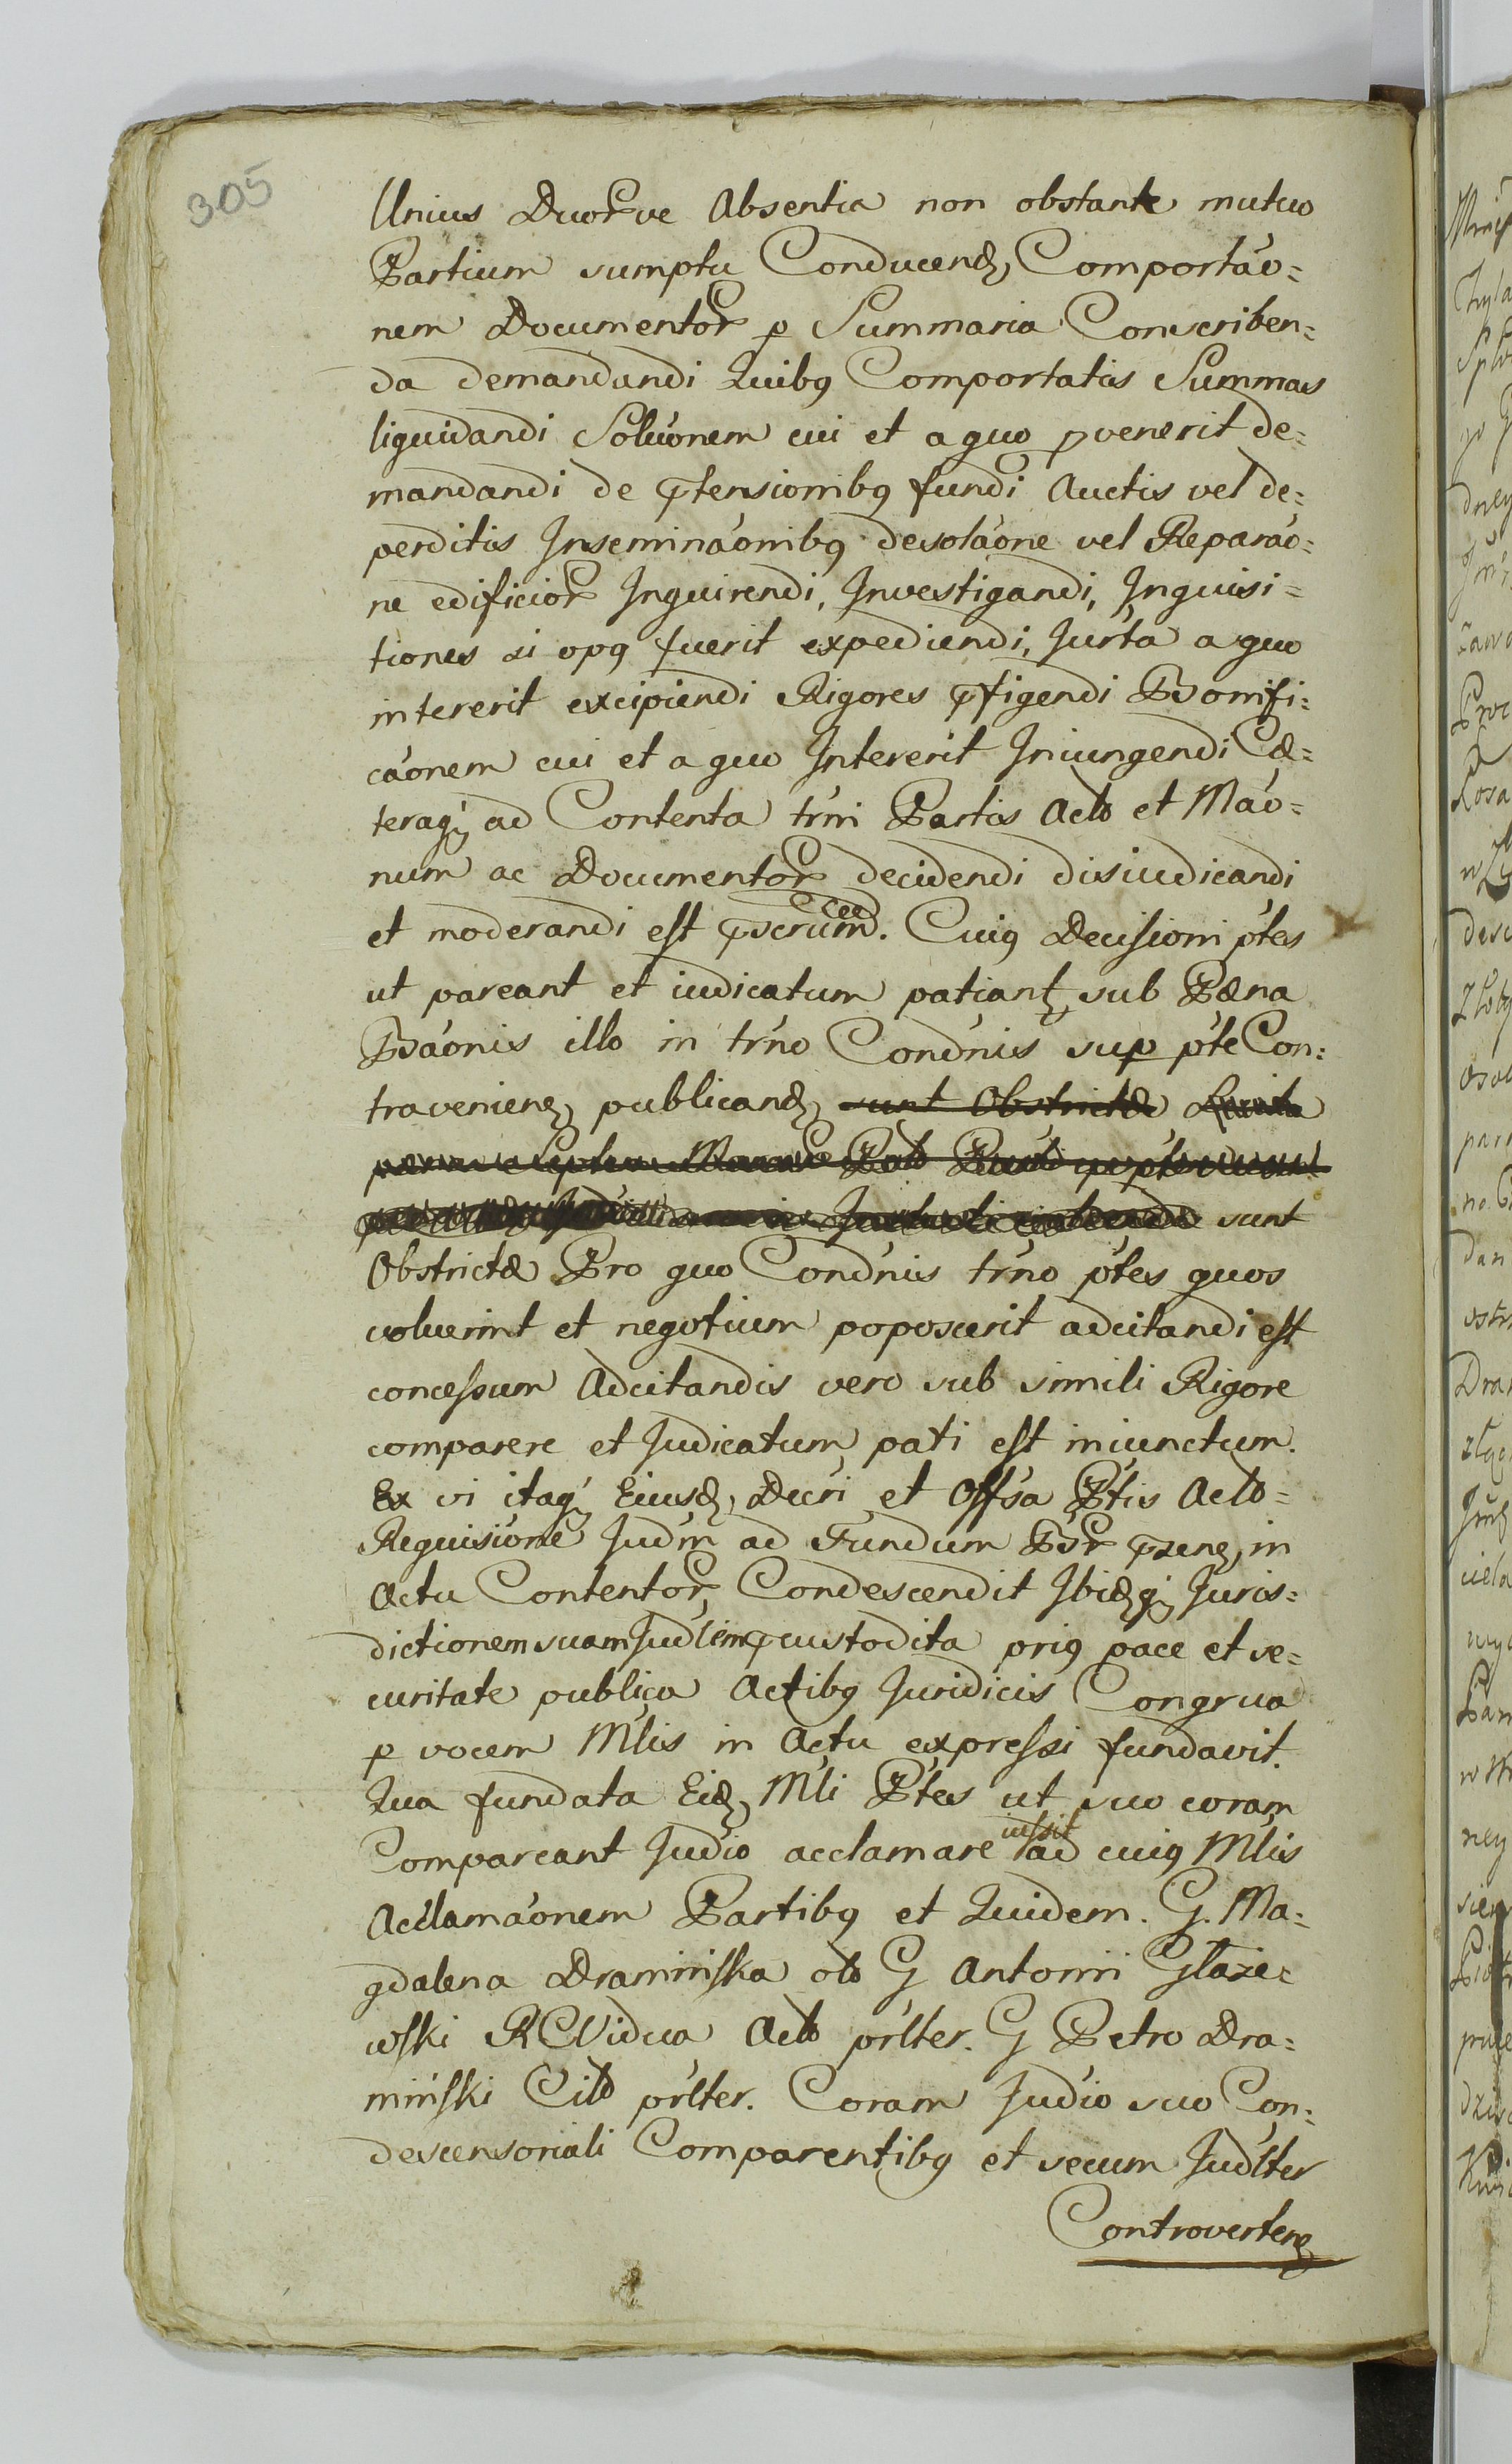 305
Unius Duorve Absentia non obstante mutuo
Partium sumptu Conducend, Comportão=
nem Documentor p Summaria Conscriben=
da demandandi Quibq Comportatis Summas
liquidandi Soluonem cui et a quo pvenerit de=
mandandi de ptensionibq fundi Auctis vel de=
perditis Inseminaonibq desolaone vel Reparao=
ne edificior Inquirendi, Investigandi, Inquisi=
tiones si opq fuerit expediendi, Jurta a quo
intererit excipiendi Rigores pfigendi Bonifi=
caonem cui et a quo Intererit Iniungendi Cæ=
teraq ad Contenta trmi Partis Acto et Mao=
num ac Documentor decidendi disiudicandi
et moderandi est pscrum. Cuiq Decisioni ptes
ut pareant et iudicatum patiant sub Pæna
Bãonis illo in trno Condnis sup pte Con=
travenien publicand sunt Obstrictæ
sunt
Obstrictæ Pro quo Condnis trno ptes quos
voluerint et negotium poposcerit adcitandi est
concessum Adcitandis vero sub simili Rigore
comparere et Judicatum pati est iniunctum.
Ex vi itaq Eiusd, Decri et Offsa Ptis Acto=
Requisione Judm ad Fundum Bsr psen, in
Actu Contentor, Condescendit Ibidq Juris=
dictionem suam Judlem pcustodita priq pace et se=
curitate publica Actibq Juridicis Congrua
p vocem Mlis in Actu expressi fundavit.
Qua fundata Eid, Mli Ptes ut suo coram
Compareant Judio acclamare iussit ad cuiq Mlis
Acclamãonem Partibq et Quidem. G. Ma=
gdalena Dramińska olo G Antonii Głaze=
wski R Vidua Acto prlter. G Petro Dra=
miński Cito prlter. Coram Judio suo Con=
descensoriali Comparentibq et secum Judlter
Controverten